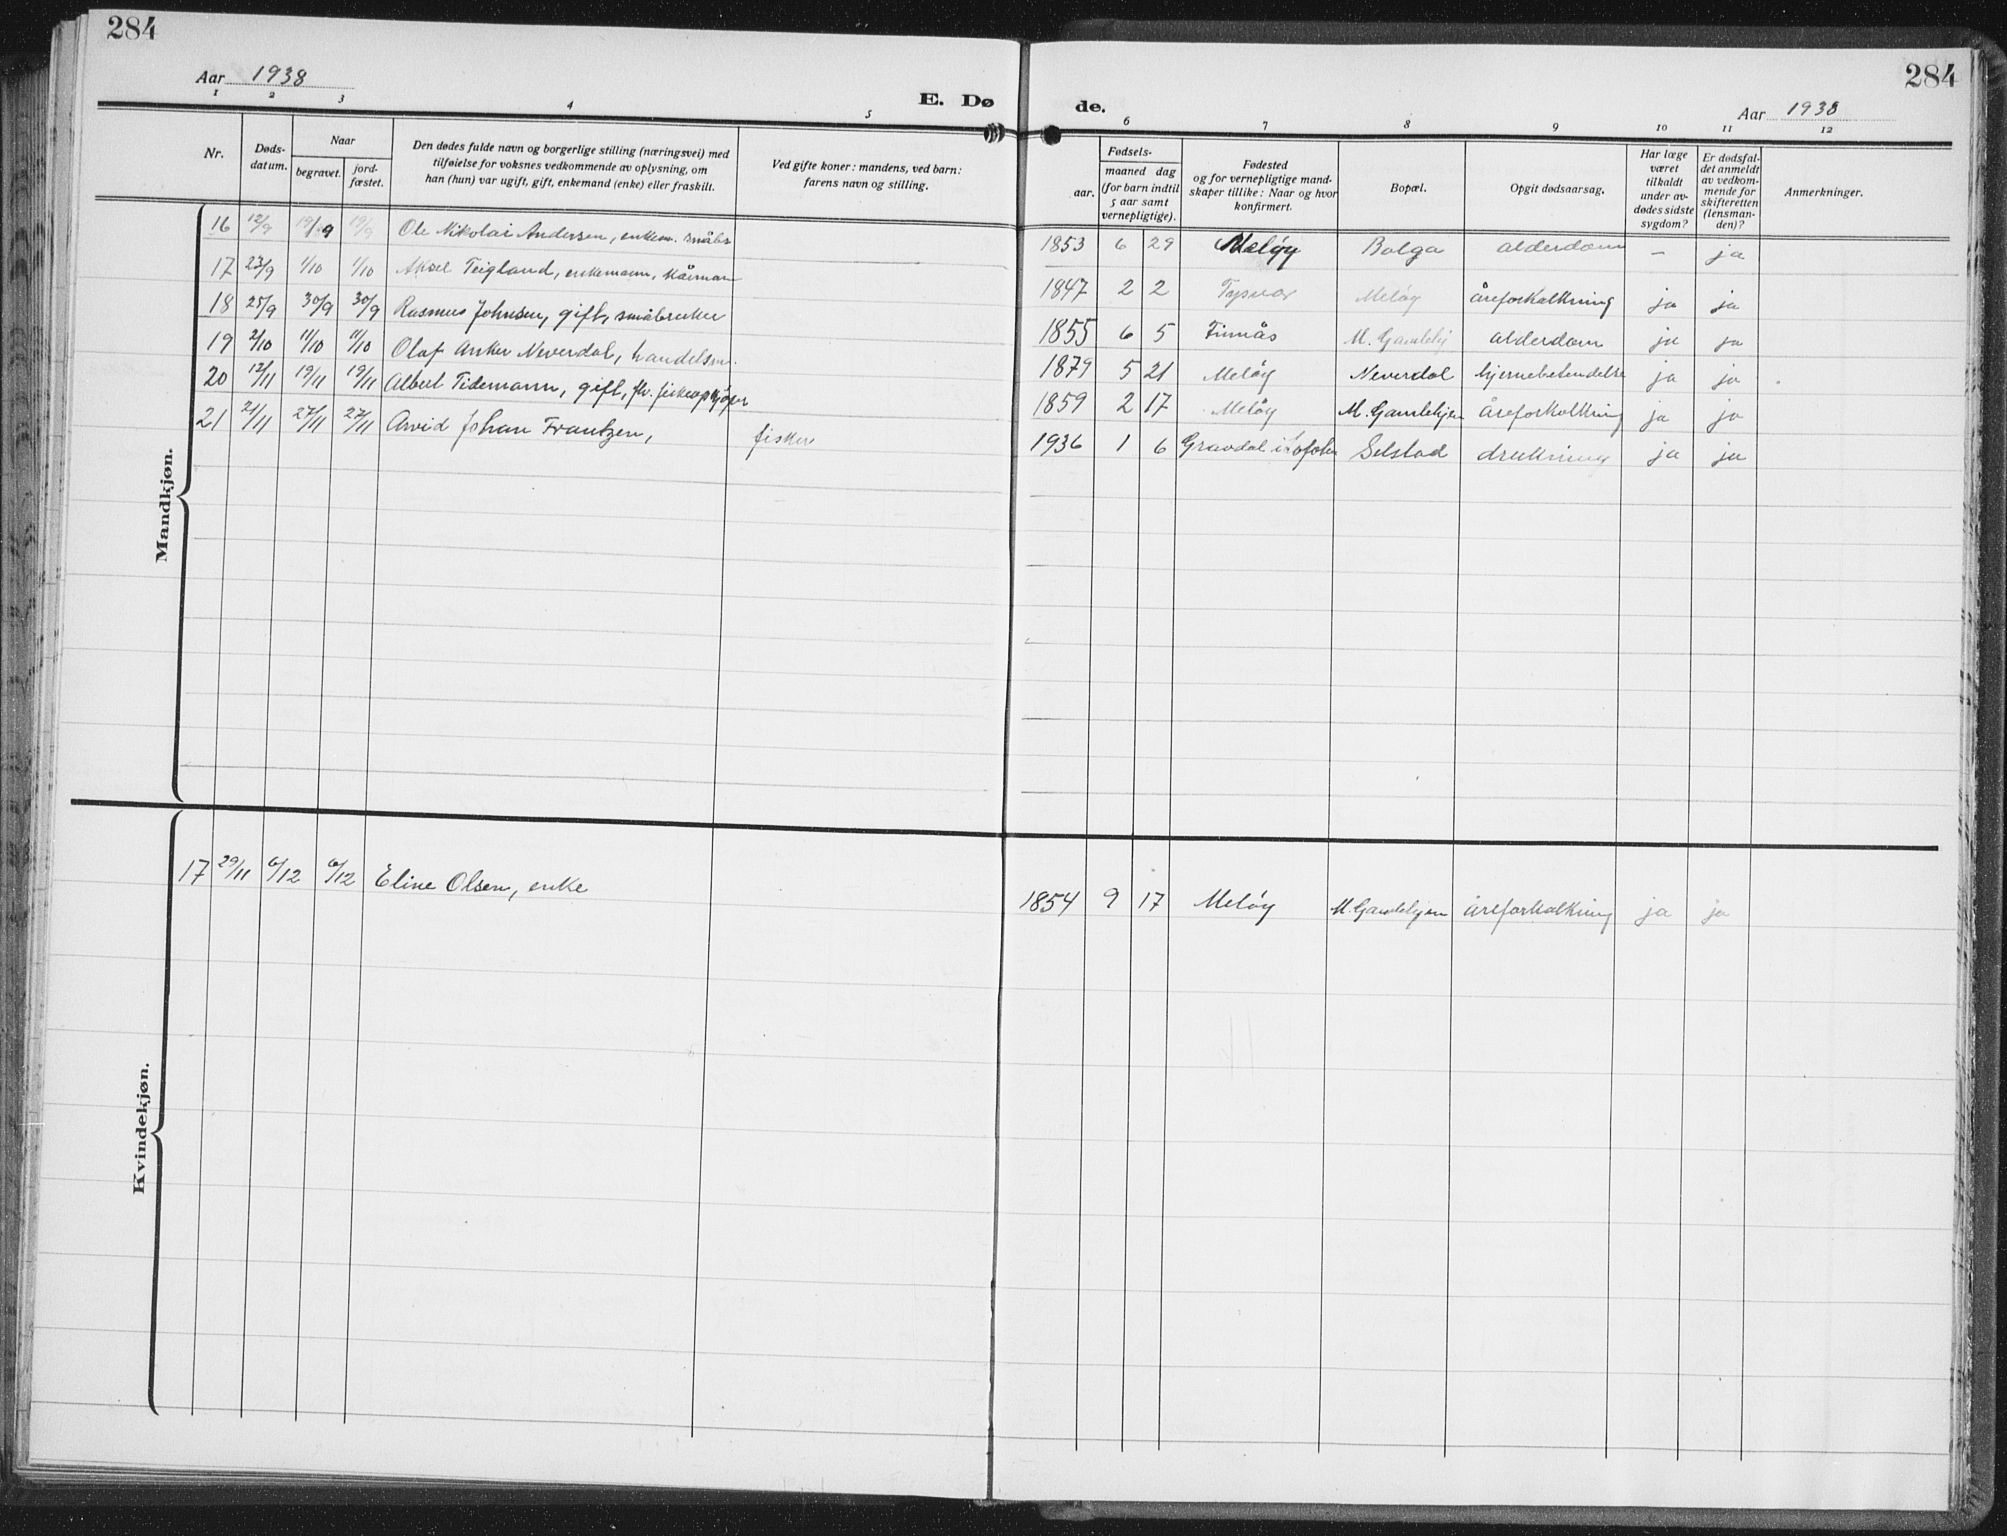 284
Aar 1938
E. Dø
1 2 3 4 5
Nr.
Døds-
datum.
Naar
begravet.
jord-
fæstet.
Den dødes fulde navn og borgerlige stilling (næringsvei) med
tilføielse for voksnes vedkommende av oplysning, om
han (hun) var ugift, gift, enkemand (enke) eller fraskilt.
Ved gifte koner: mandens, ved barn:
farens navn og stilling.
Mandkjøn.
16 12/9 19/9 19/9 Ole Nikolai Andersen, enkem. småbr
17 23/9 1/10 1/10 Aksel Teigland, enkemann, kårmann
18 25/9 30/9 30/9 Rasmus Johnsen, gift, småbruker
19 2/10 11/10 11/10 Olaf Anker Neverdal, handelsm.
20 12/11 19/11 19/11 Albert Tidemann, gift, fhv. fiskeopkjøper
21 21/11 27/11 27/11 Arvid Johan Frantzen, fisker
Kvindekjøn.
17 29/11 6/12 6/12 Eline Olsen, enke
284
de.
Aar 1938
6 7 8 9 10 11 12
Fødsels-
aar.
maaned dag
(for barn indtil
5 aar samt
vernepligtige).
Fødested
og for vernepligtige mand-
skaper tillike: Naar og hvor
konfirmert.
Bopæl.
Opgit dødsaarsag.
Har læge
været
tilkaldt
under av-
dødes sidste
sygdom?
Er dødsfal-
det anmeldt
av vedkom-
mende for
skifteretten
(lensman-
den)?
Anmerkninger.
1853 6 29 Meløy Bolga alderdom – ja
1847 2 2 Tysvær Meløy åreforkalkning ja ja
1855 6 5 Finnås M. Gamlehj alderdom ja ja
1879 5 21 Meløy Neverdal hjernebetendelse ja ja
1859 2 17 Meløy M. Gamlehjem åreforkalkning ja ja
1936 1 6 Gravdal i Lofoten Selstad drukning ja ja
1854 9 17 Meløy M. Gamlehjem åreforkalkning ja ja